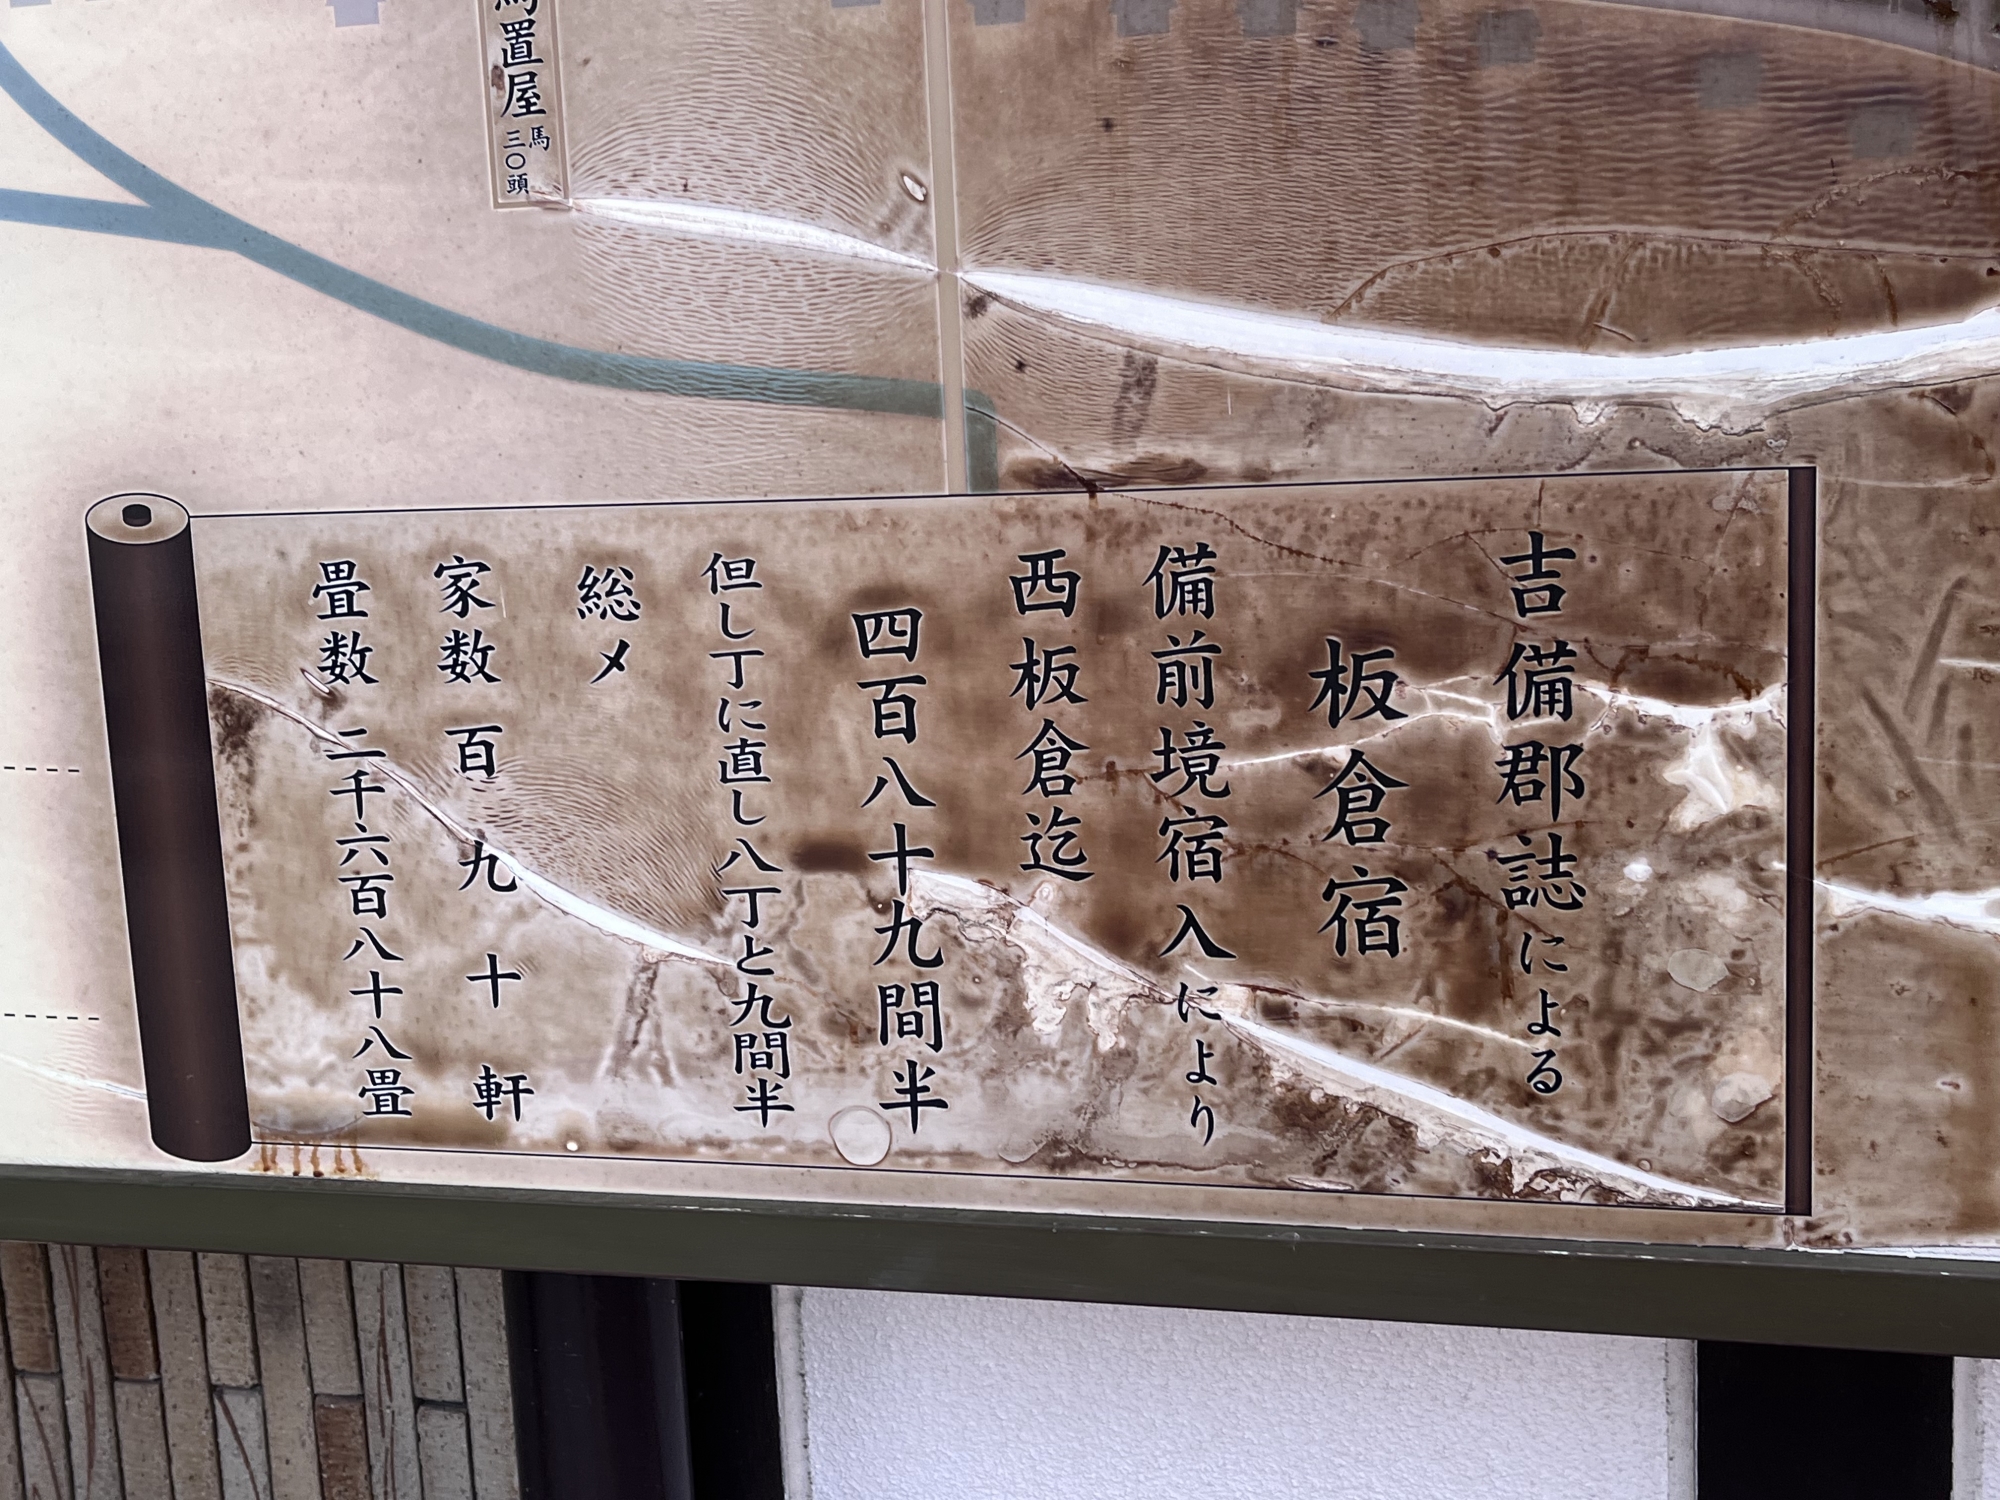 吉備郡誌による
板倉宿
備前境宿入により
西板倉迄
四百八十九間半
但し丁に直し八丁と九間半
総〆
家数 百九十軒
畳数 二千六百八十八畳
置屋 馬三〇頭